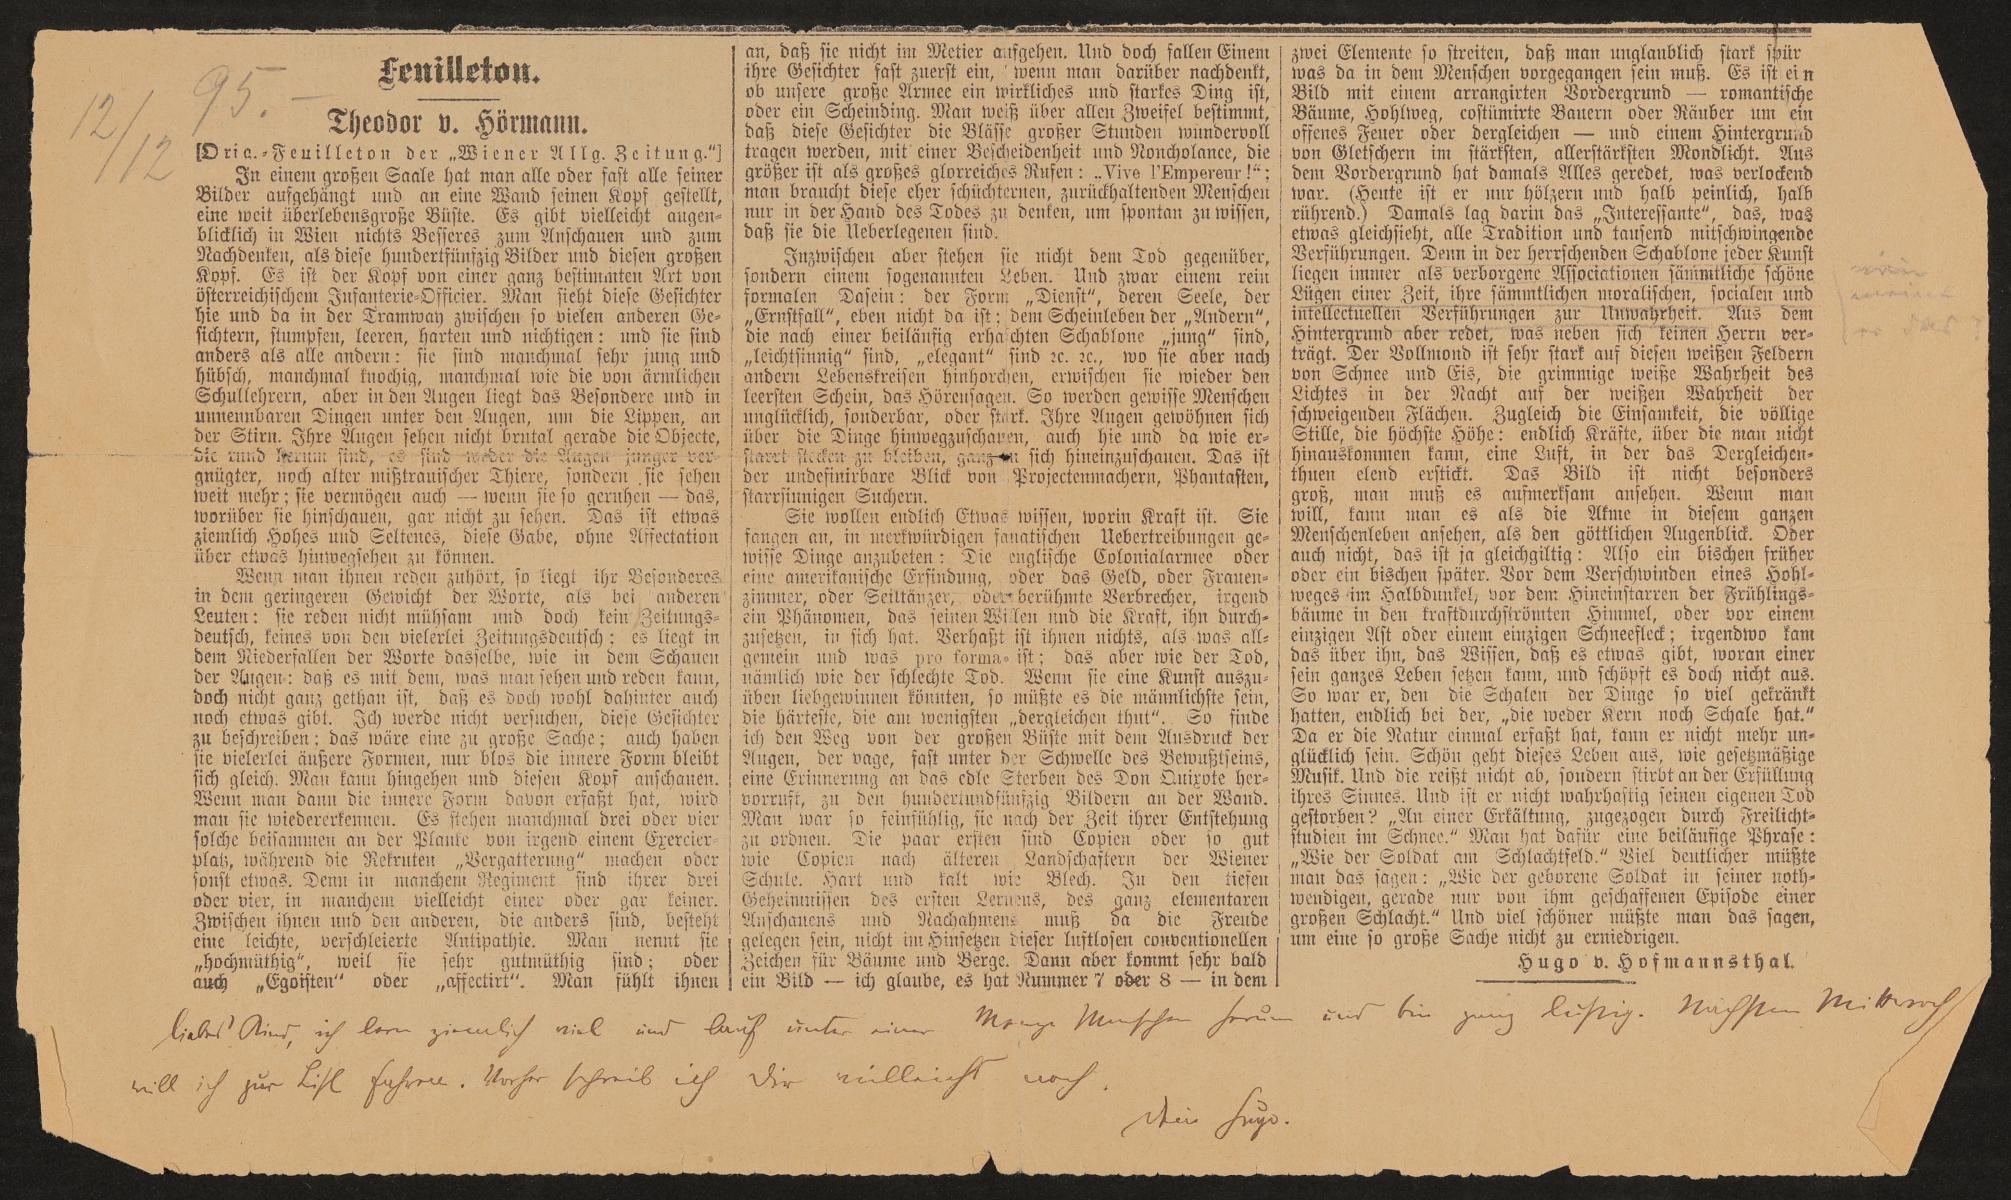 12/12 95. –
Feuilleton.
Theodor v. Hörmann.
[Orig.-Feuilleton der „Wiener Allg. Zeitung.“]
In einem großen Saale hat man alle oder fast alle seiner
Bilder aufgehängt und an eine Wand seinen Kopf gestellt,
eine weit überlebensgroße Büste. Es gibt vielleicht augen-
blicklich in Wien nichts Besseres zum Anschauen und zum
Nachdenken, als diese hundertfünfzig Bilder und diesen großen
Kopf. Es ist der Kopf von einer ganz bestimmten Art von
österreichischem Infanterie-Officier. Man sieht diese Gesichter
hie und da in der Tramway zwischen so vielen anderen Ge-
sichtern, stumpfen, leeren, harten und nichtigen: und sie sind
anders als alle andern: sie sind manchmal sehr jung und
hübsch, manchmal knochig, manchmal wie die von ärmlichen
Schullehrern, aber in den Augen liegt das Besondere und in
unnennbaren Dingen unter den Augen, um die Lippen, an
der Stirn. Ihre Augen sehen nicht brutal gerade die Objecte,
die rund herum sind, es sind weder die Augen junger ver-
gnügter, noch alter mißtrauischer Thiere, sondern sie sehen
weit mehr; sie vermögen auch — wenn sie so geruhen — das,
worüber sie hinschauen, gar nicht zu sehen. Das ist etwas
ziemlich Hohes und Seltenes, diese Gabe, ohne Affectation
über etwas hinwegsehen zu können.
Wenn man ihnen reden zuhört, so liegt ihr Besonderes
in dem geringeren Gewicht der Worte, als bei anderen
Leuten: sie reden nicht mühsam und doch kein Zeitungs-
deutsch, keines von den vielerlei Zeitungsdeutsch; es liegt in
dem Niederfallen der Worte dasselbe, wie in dem Schauen
der Augen: daß es mit dem, was man sehen und reden kann,
doch nicht ganz gethan ist, daß es doch wohl dahinter auch
noch etwas gibt. Ich werde nicht versuchen, diese Gesichter
zu beschreiben; das wäre eine zu große Sache; auch haben
sie vielerlei äußere Formen, nur blos die innere Form bleibt
sich gleich. Man kann hingehen und diesen Kopf anschauen.
Wenn man dann die innere Form davon erfaßt hat, wird
man sie wiedererkennen. Es stehen manchmal drei oder vier
solche beisammen an der Planke von irgend einem Exercier-
platz, während die Rekruten „Vergatterung“ machen oder
sonst etwas. Denn in manchem Regiment sind ihrer drei
oder vier, in manchem vielleicht einer oder gar keiner.
Zwischen ihnen und den anderen, die anders sind, besteht
eine leichte, verschleierte Antipathie. Man nennt sie
„hochmüthig“, weil sie sehr gutmüthig sind; oder
auch „Egoisten“ oder „affectirt“. Man fühlt ihnen
an, daß sie nicht im Metier aufgehen. Und doch fallen Einem
ihre Gesichter fast zuerst ein, wenn man darüber nachdenkt,
ob unsere große Armee ein wirkliches und starkes Ding ist,
oder ein Scheinding. Man weiß über allen Zweifel bestimmt,
daß diese Gesichter die Blässe großer Stunden wundervoll
tragen werden, mit einer Bescheidenheit und Noncholance, die
größer ist als großes glorreiches Rufen: „Vive l'Empereur!“;
man braucht diese eher schüchternen, zurückhaltenden Menschen
nur in der Hand des Todes zu denken, um spontan zu wissen,
daß sie die Ueberlegenen sind.
Inzwischen aber stehen sie nicht dem Tod gegenüber,
sondern einem sogenannten Leben. Und zwar einem rein
formalen Dasein: der Form „Dienst“, deren Seele, der
„Ernstfall“, eben nicht da ist; dem Scheinleben der „Andern“,
die nach einer beiläufig erhaschten Schablone „jung“ sind,
„leichtsinnig“ sind, „elegant“ sind ꝛc. ꝛc., wo sie aber nach
andern Lebenskreisen hinhorchen, erwischen sie wieder den
leersten Schein, das Hörensagen. So werden gewisse Menschen
unglücklich, sonderbar, oder stark. Ihre Augen gewöhnen sich
über die Dinge hinwegzuschauen, auch hie und da wie er-
starrt stecken zu bleiben, ganz in sich hineinzuschauen. Das ist
der undefinirbare Blick von Projectenmachern, Phantasten,
starrsinnigen Suchern.
Sie wollen endlich Etwas wissen, worin Kraft ist. Sie
fangen an, in merkwürdigen fanatischen Uebertreibungen ge-
wisse Dinge anzubeten: Die englische Colonialarmee oder
eine amerikanische Erfindung, oder das Geld, oder Frauen-
zimmer, oder Seiltänzer, oder berühmte Verbrecher, irgend
ein Phänomen, das seinen Willen und die Kraft, ihn durch-
zusetzen, in sich hat. Verhaßt ist ihnen nichts, als was all-
gemein und was pro forma ist; das aber wie der Tod,
nämlich wie der schlechte Tod. Wenn sie eine Kunst auszu-
üben liebgewinnen könnten, so müßte es die männlichste sein,
die härteste, die am wenigsten „dergleichen thut“. So finde
ich den Weg von der großen Büste mit dem Ausdruck der
Augen, der vage, fast unter der Schwelle des Bewußtseins,
eine Erinnerung an das edle Sterben des Don Quixote her-
vorruft, zu den hundertundfünfzig Bildern an der Wand.
Man war so feinfühlig, sie nach der Zeit ihrer Entstehung
zu ordnen. Die paar ersten sind Copien oder so gut
wie Copien nach älteren Landschaftern der Wiener
Schule. Hart und kalt wie Blech. In den tiefen
Geheimnissen des ersten Lernens, des ganz elementaren
Anschauens und Nachahmens muß da die Freude
gelegen sein, nicht im Hinsetzen dieser lustlosen conventionellen
Zeichen für Bäume und Berge. Dann aber kommt sehr bald
ein Bild — ich glaube, es hat Nummer 7 oder 8 — in dem
zwei Elemente so streiten, daß man unglaublich stark spür
was da in dem Menschen vorgegangen sein muß. Es ist ein
Bild mit einem arrangirten Vordergrund — romantische
Bäume, Hohlweg, costümirte Bauern oder Räuber um ein
offenes Feuer oder dergleichen — und einem Hintergrund
von Gletschern im stärksten, allerstärksten Mondlicht. Aus
dem Vordergrund hat damals Alles geredet, was verlockend
war. (Heute ist er nur hölzern und halb peinlich, halb
rührend.) Damals lag darin das „Interessante“, das, was
etwas gleichsieht, alle Tradition und tausend mitschwingende
Verführungen. Denn in der herrschenden Schablone jeder Kunst
liegen immer als verborgene Associationen sämmtliche schöne
Lügen einer Zeit, ihre sämmtlichen moralischen, socialen und
intellectuellen Verführungen zur Unwahrheit. Aus dem
Hintergrund aber redet, was neben sich keinen Herrn ver-
trägt. Der Vollmond ist sehr stark auf diesen weißen Feldern
von Schnee und Eis, die grimmige weiße Wahrheit des
Lichtes in der Nacht auf der weißen Wahrheit der
schweigenden Flächen. Zugleich die Einsamkeit, die völlige
Stille, die höchste Höhe: endlich Kräfte, über die man nicht
hinauskommen kann, eine Lust, in der das Dergleichen-
thuen elend erstickt. Das Bild ist nicht besonders
groß, man muß es aufmerksam ansehen. Wenn man
will, kann man es als die Akme in diesem ganzen
Menschenleben ansehen, als den göttlichen Augenblick. Oder
auch nicht, das ist ja gleichgiltig: Also ein bischen früher
oder ein bischen später. Vor dem Verschwinden eines Hohl-
weges im Halbdunkel, vor dem Hineinstarren der Frühlings-
bäume in den kraftdurchströmten Himmel, oder vor einem
einzigen Ast oder einem einzigen Schneefleck; irgendwo kam
das über ihn, das Wissen, daß es etwas gibt, woran einer
sein ganzes Leben setzen kann, und schöpft es doch nicht aus.
So war er, den die Schalen der Dinge so viel gekränkt
hatten, endlich bei der, „die weder Kern noch Schale hat.“
Da er die Natur einmal erfaßt hat, kann er nicht mehr un-
glücklich sein. Schön geht dieses Leben aus, wie gesetzmäßige
Musik. Und die reißt nicht ab, sondern stirbt an der Erfüllung
ihres Sinnes. Und ist er nicht wahrhaftig seinen eigenen Tod
gestorben? „An einer Erkältung, zugezogen durch Freilicht-
studien im Schnee.“ Man hat dafür eine beiläufige Phrase:
„Wie der Soldat am Schlachtfeld.“ Viel deutlicher müßte
man das sagen: „Wie der geborene Soldat in seiner noth-
wendigen, gerade nur von ihm geschaffenen Episode einer
großen Schlacht.“ Und viel schöner müßte man das sagen,
um eine so große Sache nicht zu erniedrigen.
Hugo v. Hofmannsthal.
wie
meint
er das?
liebes Kind, ich lern ziemlich viel und lauf unter einer Menge Menschen herum und bin ganz lustig. Nächsten Mittwoch
will ich zur Lisl fahren. Vorher schreib ich Dir vielleicht noch.
Dein Hugo.